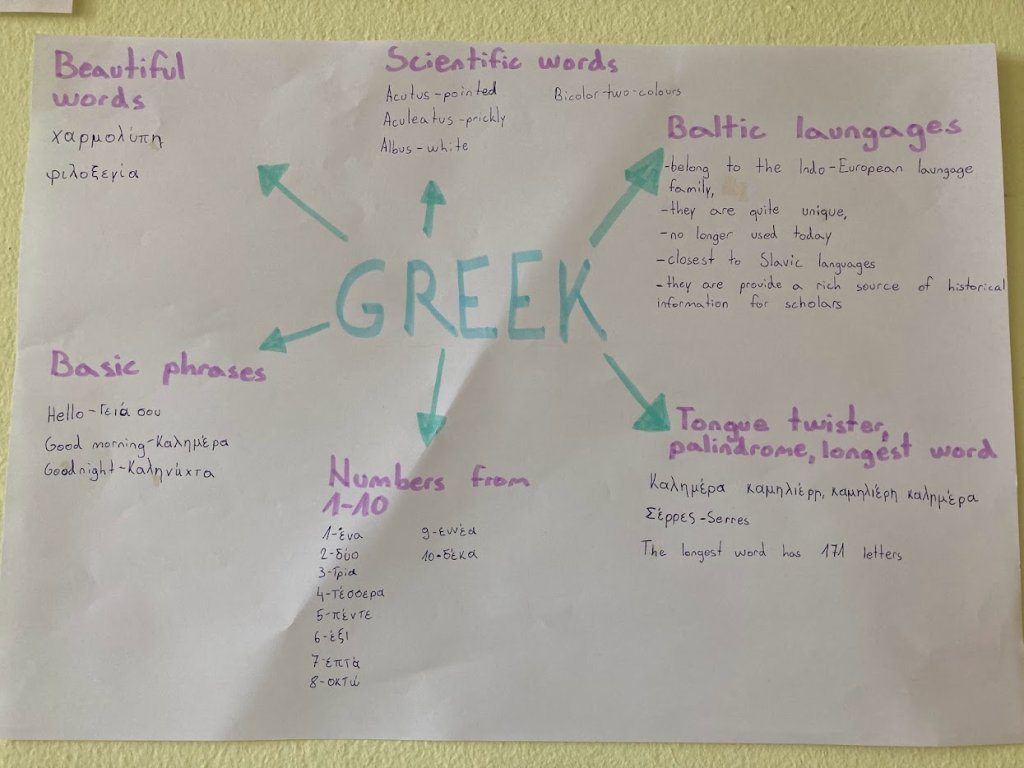 Beautiful
words
χαρμολύπη
φιλοξενία
Scientific words
Acutus-pointed
Aculeatus-prickly
Albus-white
Bicolor-two-colours
Baltic laungages
-belong to the Indo-European laungage
family,
-they are quite unique,
-no longer used today
-closest to Slavic languages
-they are provide a rich source of historical
information for scholars
GREEK
Basic phrases
Hello-Γειά σου
Good morning-Καλημέρα
Goodnight-Καληνύχτα
Numbers from
1-10
1-ένα
2-δύο
3-τρία
4-τέσσερα
5-πέντε
6-έξι
7-επτά
8-οκτώ
9-εννέα
10-δέκα
Tongue twister,
palindrome, longest word
Καλημέρα καμηλιέρη, καμηλιέρη καλημέρα
Σέρρες-Serres
The longest word has 171 letters